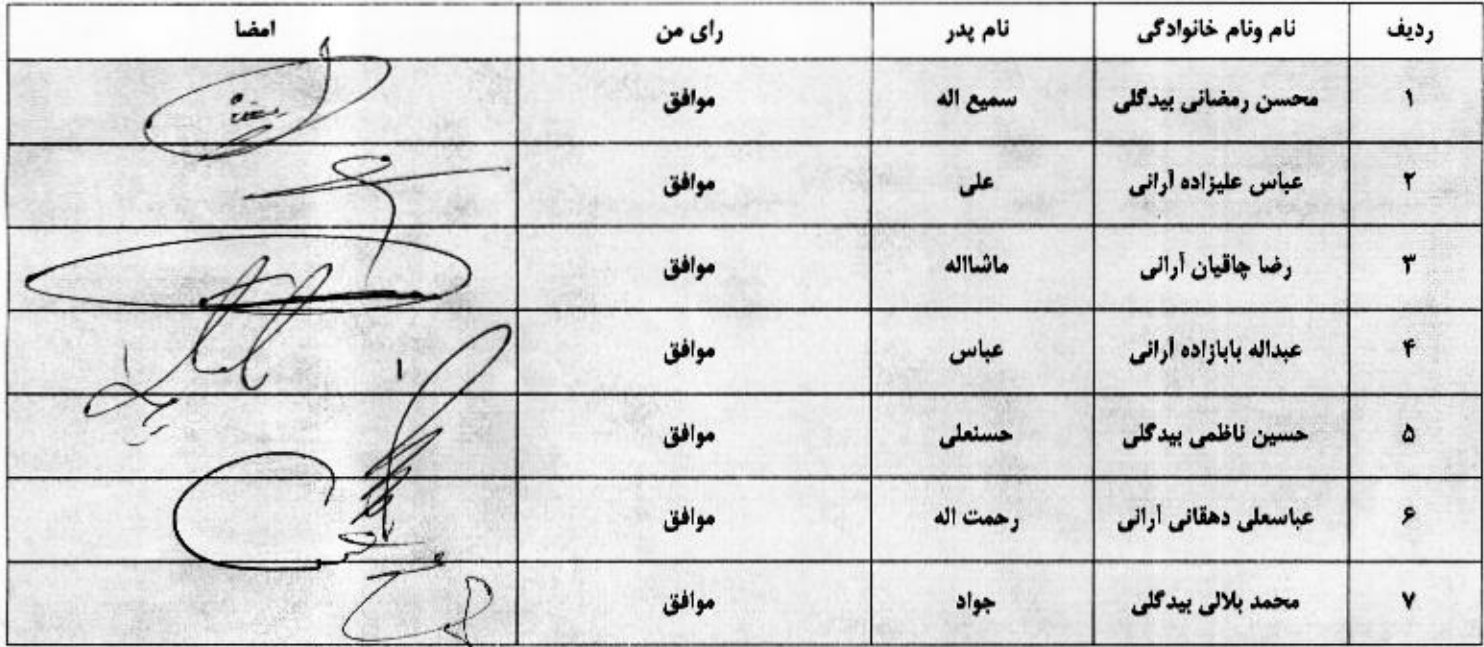 ردیف نام ونام خانوادگی نام پدر رای من امضا
۱ محسن رمضانی بیدگلی سمیع اله موافق
۲ عباس علیزاده آرانی علی موافق
۳ رضا چاقیان آرانی ماشااله موافق
۴ عبداله بابازاده آرانی عباس موافق
۵ حسین ناظمی بیدگلی حسنعلی موافق
۶ عباسعلی دهقانی آرانی رحمت اله موافق
۷ محمد بلالی بیدگلی جواد موافق